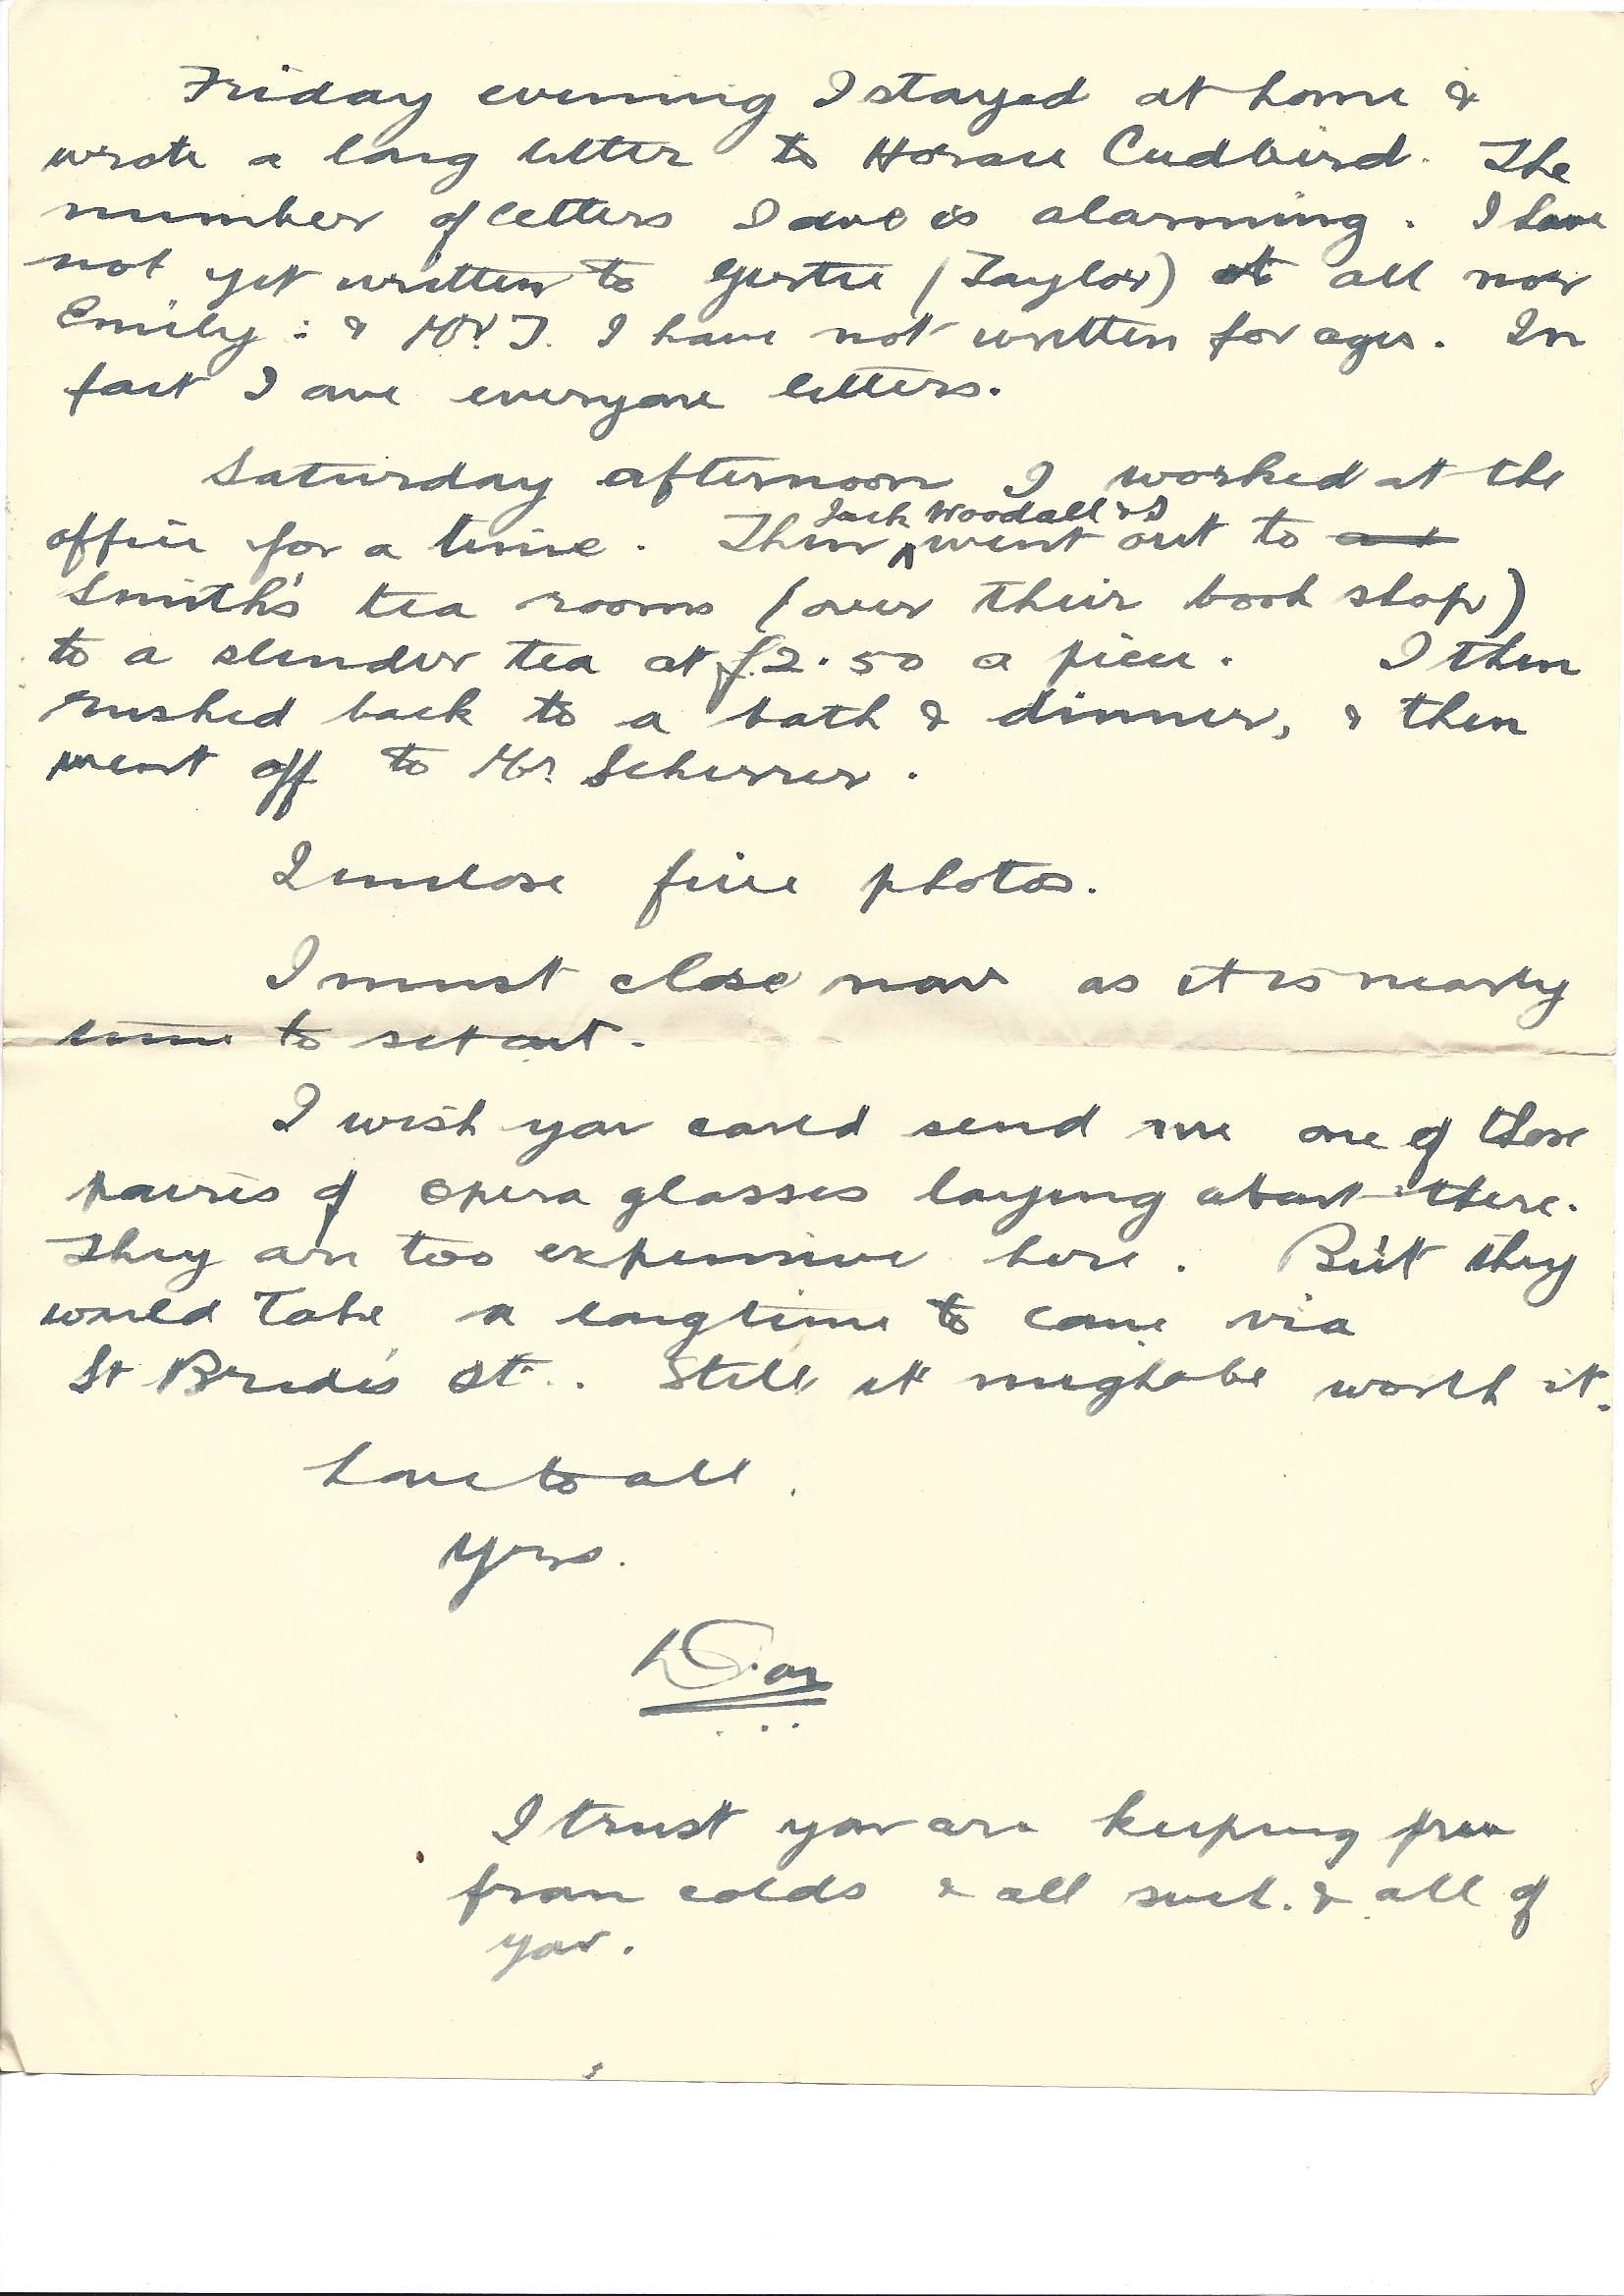 Friday evening I stayed at home &
wrote a long letter to Horace Cudbird. The
number of letters I owe is alarming. I have
not yet written to Gertie (Taylor) at all nor
Emily: & Mr. T. I have not written for ages. In
fact I owe everyone letters.
Saturday afternoon I worked at the
Jack Woodall & I
office for a time. Then ^ went out to
Smith's tea rooms (over their book shop)
to a slender tea at f2.50 a piece. I then
rushed back to a bath & dinner, & then
went off to Mr. Scherrer.
I enclose five photos.
I must close now as it is nearly
time to set out.
I wish you could send me one of those
paires of opera glasses laying about there.
They are too expensive here. But they
would take a long time to come via
St Brides St.. Still it might be worth it.
Love to all.
Yrs.
I trust you are keeping free
from colds & all such. & all of
you.